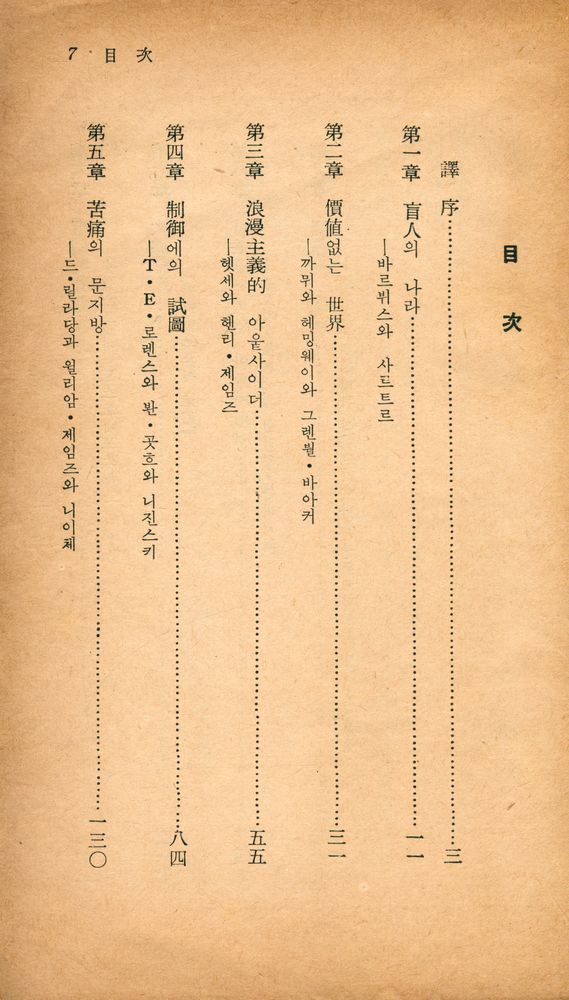 7 目 次
目 次
譯 序……三
第一章 盲人의 나라……一一
—바르뷔스와 사르트르
第二章 價値없는 世界……三一
—까뮈와 헤밍웨이와 그렌빌•바아커
第三章 浪漫主義的 아웃사이더……五五
—헷세와 헨리•제임즈
第四章 制御에의 試圖……八四
—T•E•로렌스와 봔•곳흐와 니진스키
第五章 苦痛의 문지방……一三〇
—드•릴라당과 윌리암•제임즈와 니이체